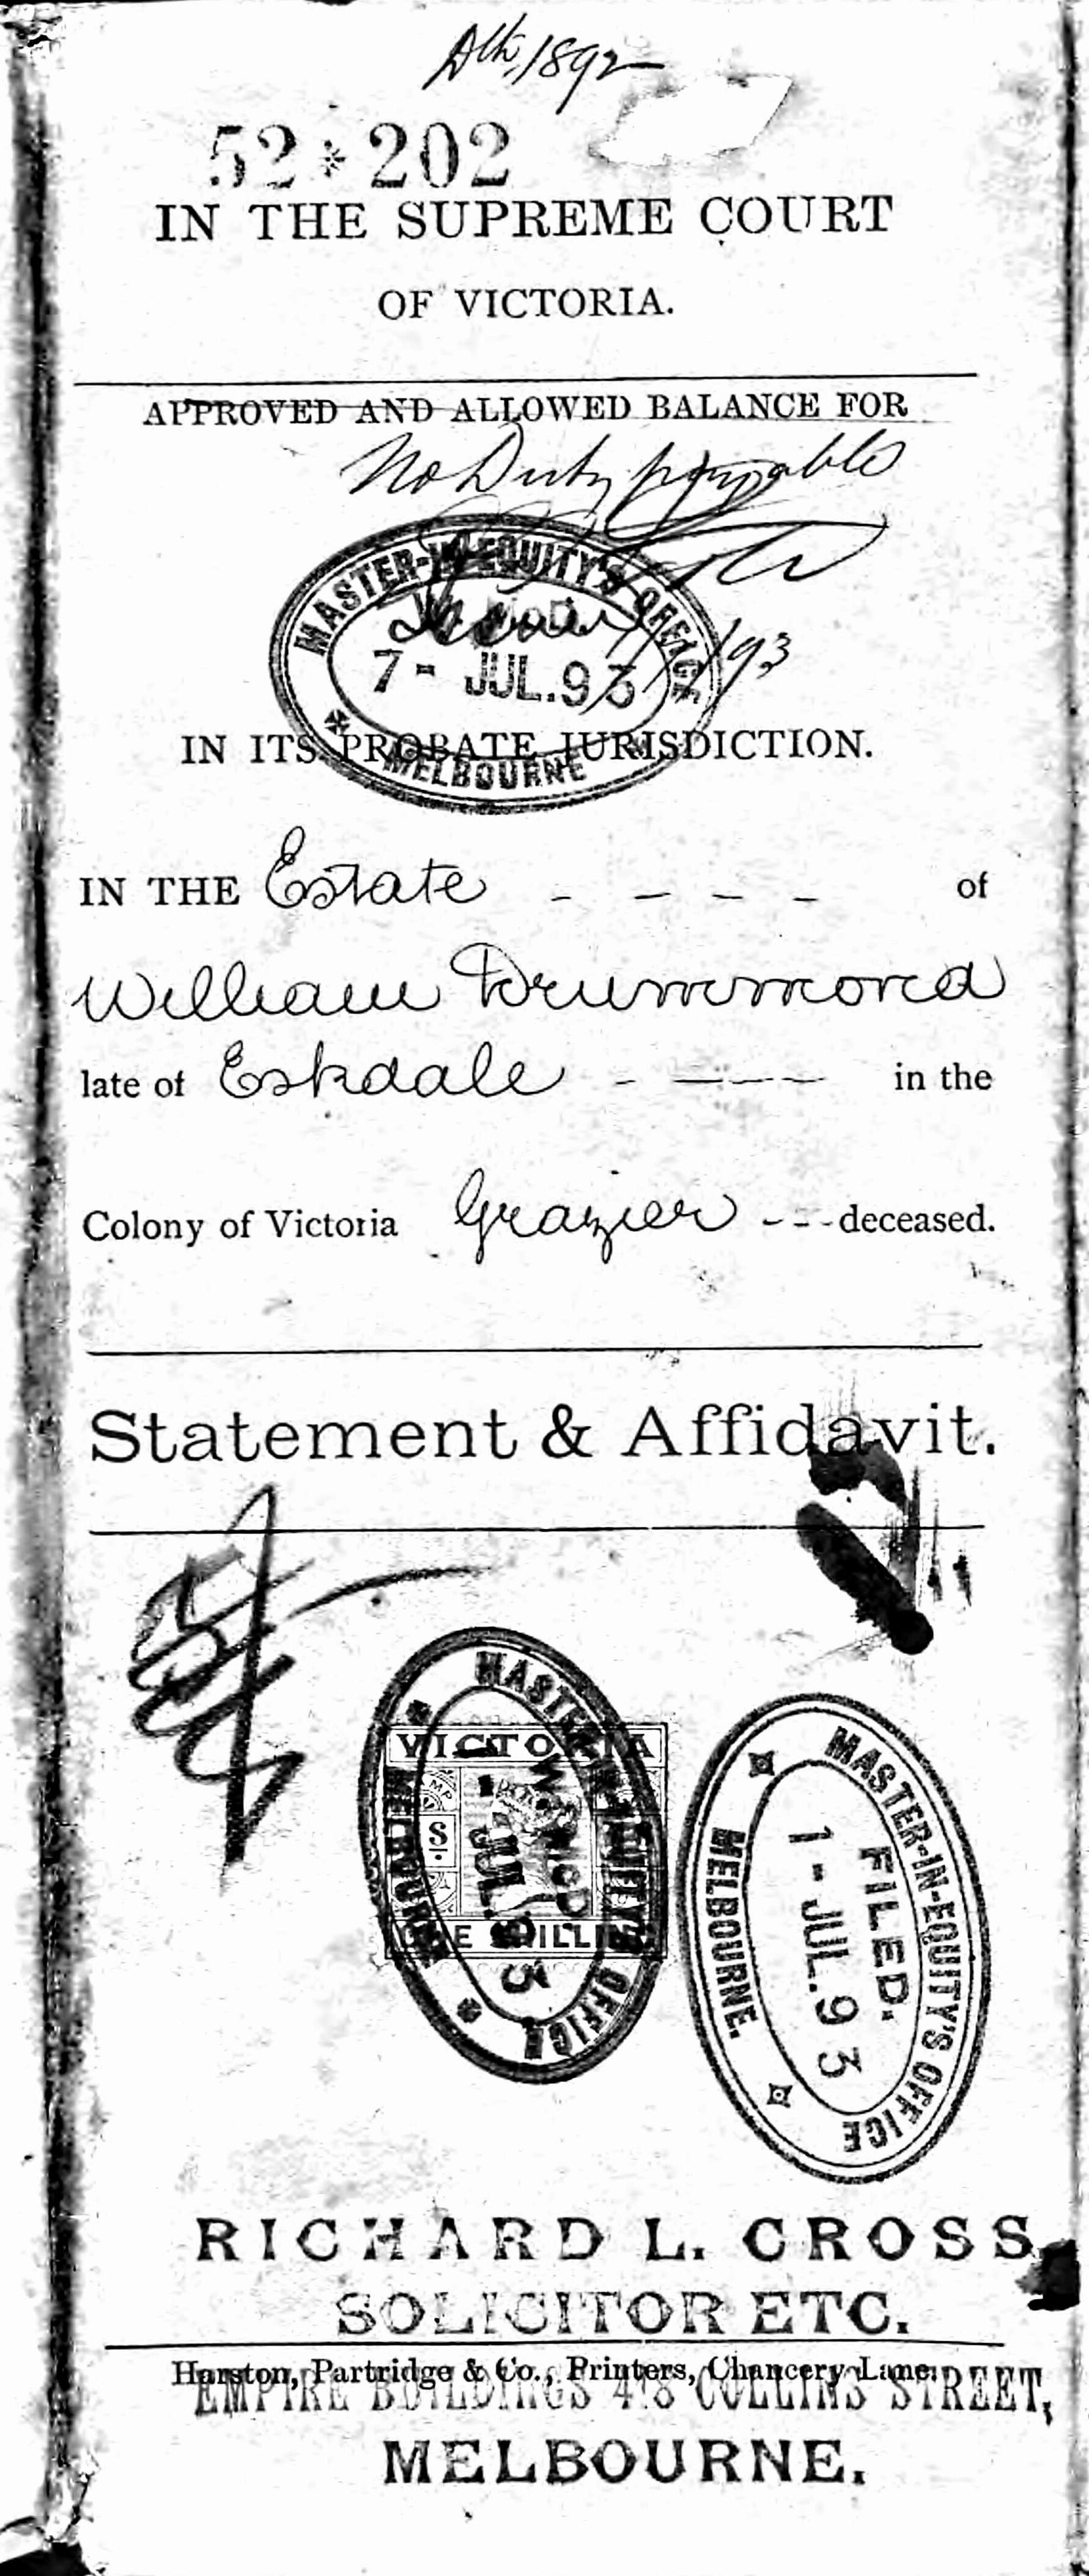 1892
52*202
IN THE SUPREME COURT
OF VICTORIA.
APPROVED AND ALLOWED BALANCE FOR
No Duty payable
MASTER-IN-EQUITY'S OFFICE
7 - JUL.93
/93
MELBOURNE
IN ITS PROBATE JURISDICTION.
IN THE Estate - - - - of
William Drummond
late of Eskdale - - - - in the
Colony of Victoria Grazier - - - deceased.
Statement & Affidavit.
MASTER-IN-EQUITY'S OFFICE
1 - JUL.93
MELBOURNE
VICTORIA
ONE SHILLING
MASTER-IN-EQUITY'S OFFICE
FILED.
1 - JUL.93
MELBOURNE.
RICHARD L. CROSS
SOLICITOR ETC.
Harston, Partridge & Co., Printers, Chancery Lane.
EMPIRE BUILDINGS 418 COLLINS STREET,
MELBOURNE.